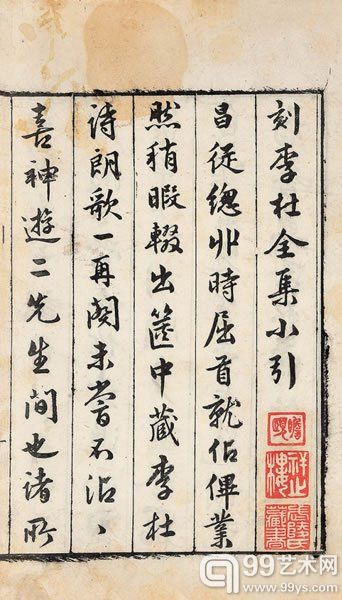 刻李杜全集小引
昌從總丱時屈首就佔俾業
然稍暇輟出篋中藏李杜
詩朗歌一再闋未嘗不沾丶
喜神遊二先生間也諸所
武陵氏
藏書
99艺术网
www.99ys.com